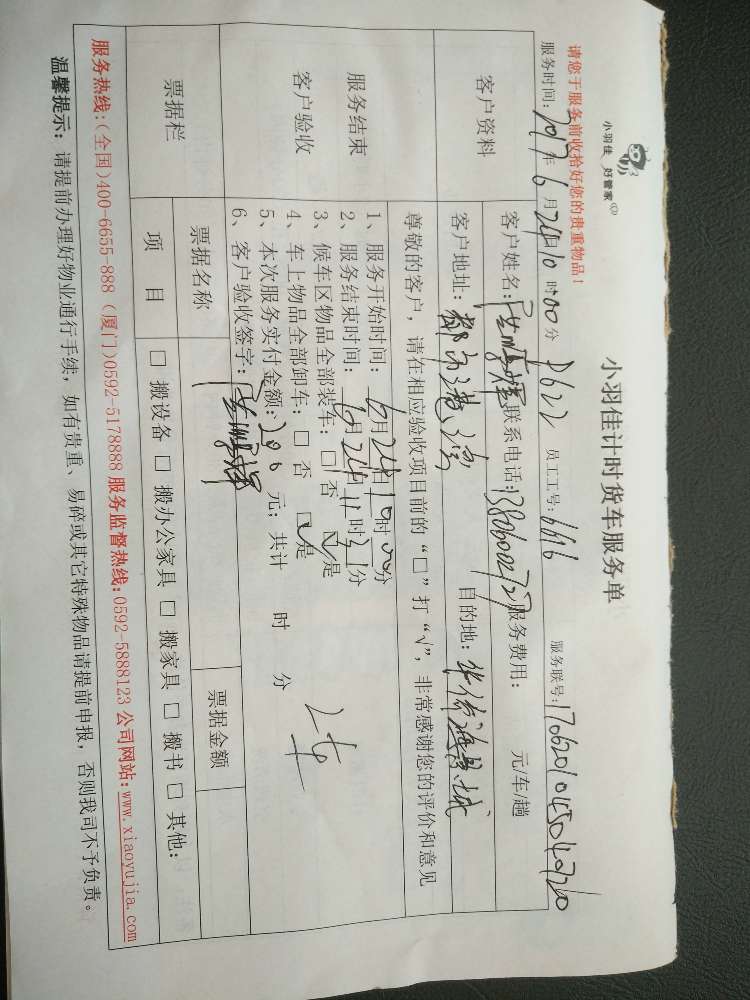 小羽佳 好管家
小羽佳计时货车服务单
请您于服务前收拾好您的贵重物品！
服务时间：2017年6月24日10时00分 员工工号：6616 服务联号：
客户资料
客户姓名： 联系电话：13806002727 服务费用： 元/车/趟
客户地址：都市港湾 目的地：
尊敬的客户，请在相应验收项目前的“□”打“√”，非常感谢您的评价和意见
服务结束
客户验收
1、服务开始时间：6月24日10时00分
2、服务结束时间：6月24日11时21分
3、候车区物品全部装车：□否 ☑是
4、车上物品全部卸车：□否 ☑是
5、本次服务实付金额：206元；共计 时 分
6、客户验收签字：
票据栏
票据名称 票据金额
项目 □搬设备 □搬办公家具 □搬家具 □搬书 □其他：
服务热线：(全国)400-6655-888 (厦门)0592-5178888 服务监督热线：0592-5888123 公司网站：www.xiaoyujia.com
温馨提示：请提前办理好物业通行手续，如有贵重、易碎或其它特殊物品请提前申报，否则我司不予负责。